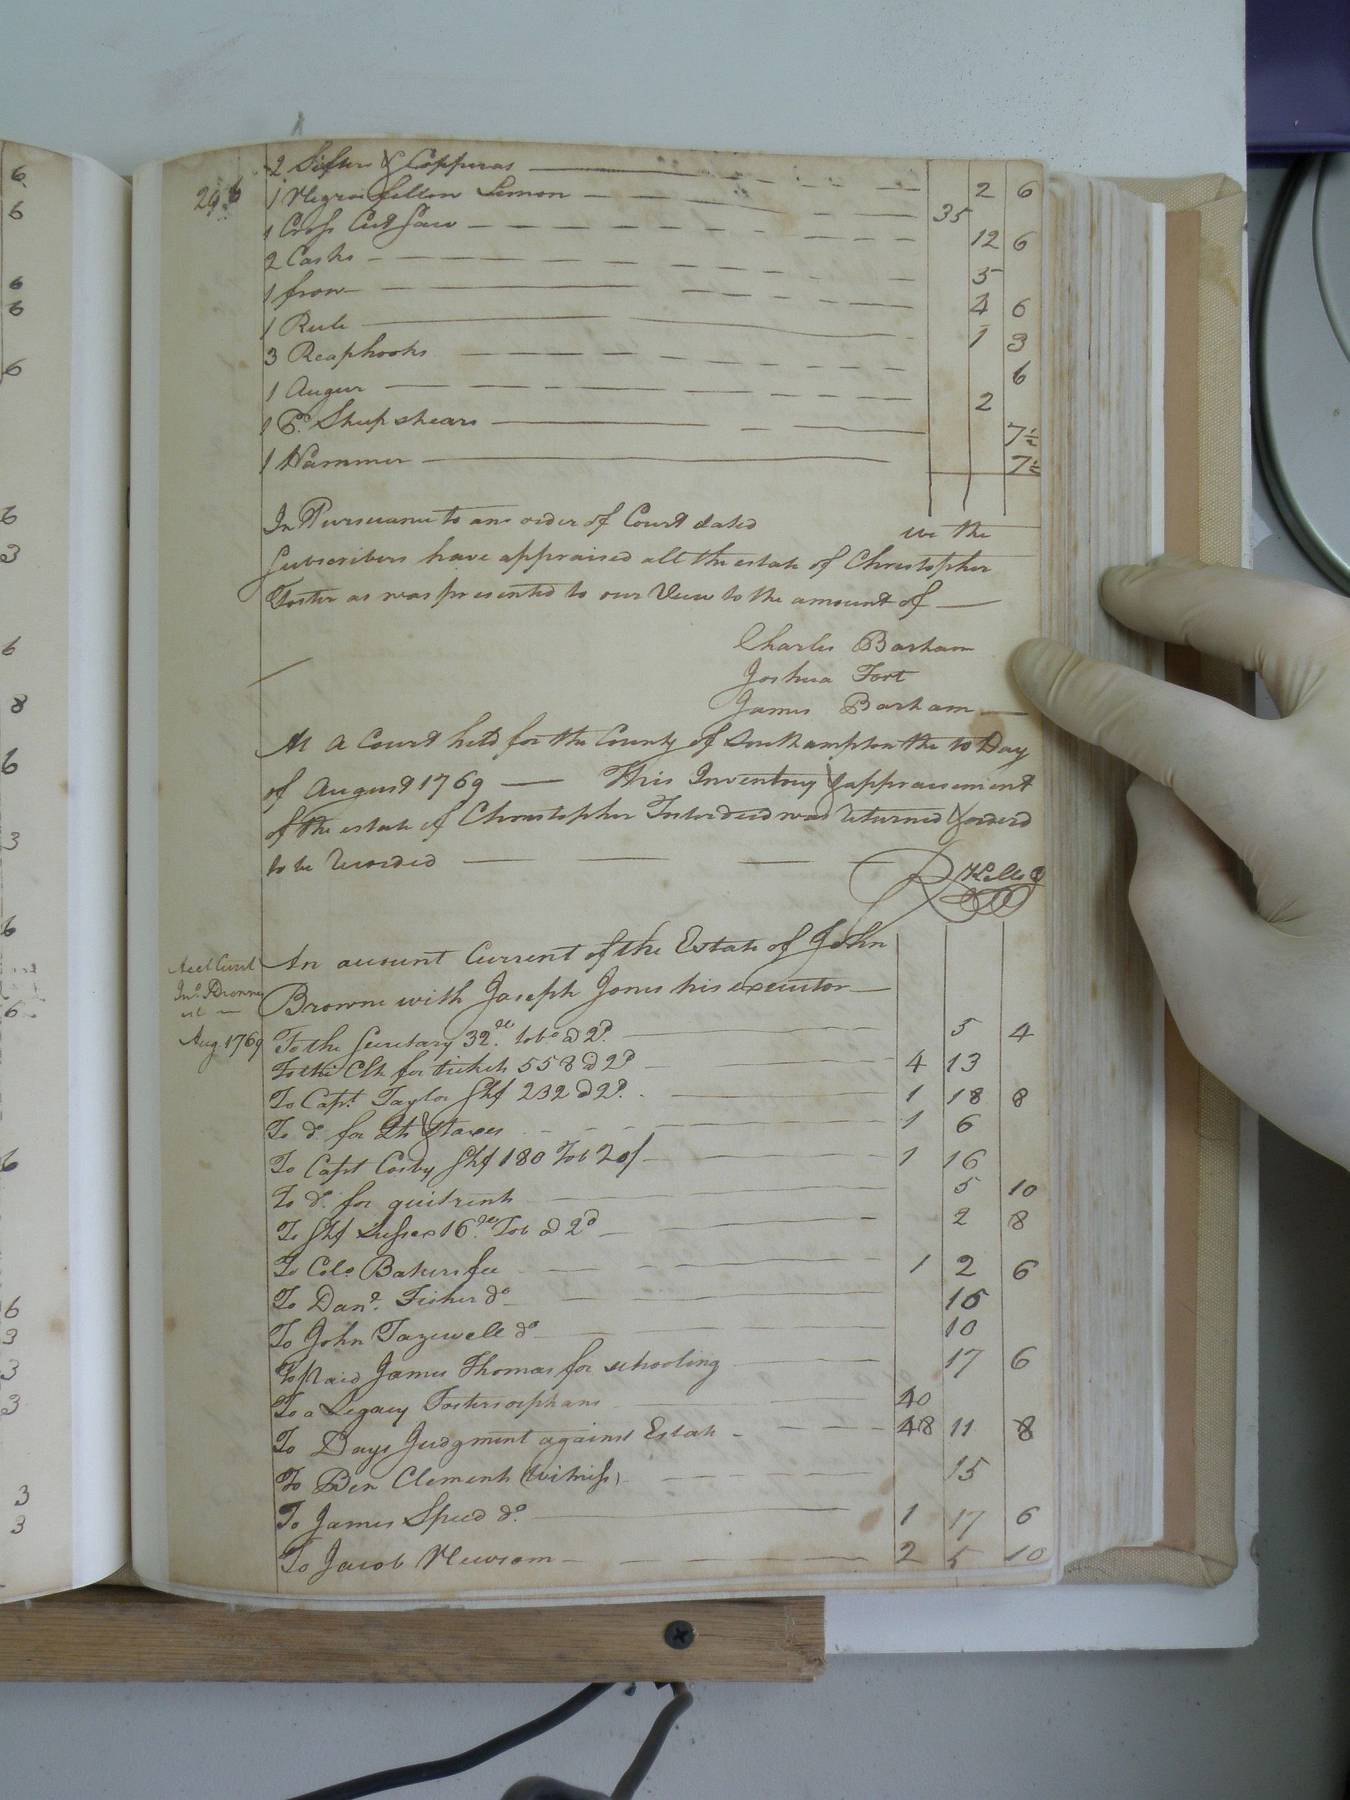 296
2 Sifters & Copperas 2 6
1 Negroe fellow Simon 35
1 Cross Cut Saw 12 6
2 Casks 5
1 frow 4 6
1 Rule 1 3
3 Reaphooks 6
1 Augur 2
1 Pr. Sheep shears 7½
1 Hammer 7½
In Pursuance to an order of Court dated we the
Subscribers have appraised all the estate of Christopher
Foster as was presented to our View to the amount of
Charles Barham
Joshua Fort
James Barham
At a Court held for the County of Southampton the 10 Day
of August 1769 — This Inventory & appraisement
of the estate of Christopher Foster decd was returned & orderd
to be Recorded
R Kello
Acct Curt
Jno. Browne
Aug. 1769
An account Current of the Estate of John
Browne with Joseph Jones his executor
To the Secretary 32 tobo a 2d. 5 4
To the Clk for tickets 558 a 2d 4 13
To Capt. Taylor Shf 232 a 2d. 1 18 8
To do. for & taxes 1 6
To Capt Cosby Shf 180 Tob 20/ 1 16
To do. for quitrents 5 10
To Shf Sussex 16 Tob a 2d 2 8
To Colo Bakers fee 1 2 6
To Danl. Fisher do 15
To John Tazewell do 10
To paid James Thomas for schooling 17 6
To a Legacy Fosters orphans 40
To Days Judgment against Estate 48 11 8
To Ben Clements (witness) 15
To James Speed do. 1 17 6
To Jacob Newsom 2 5 10
6
6
6
6
6
6
3
6
8
6
3
6
6
6
6
3
3
3
3
3